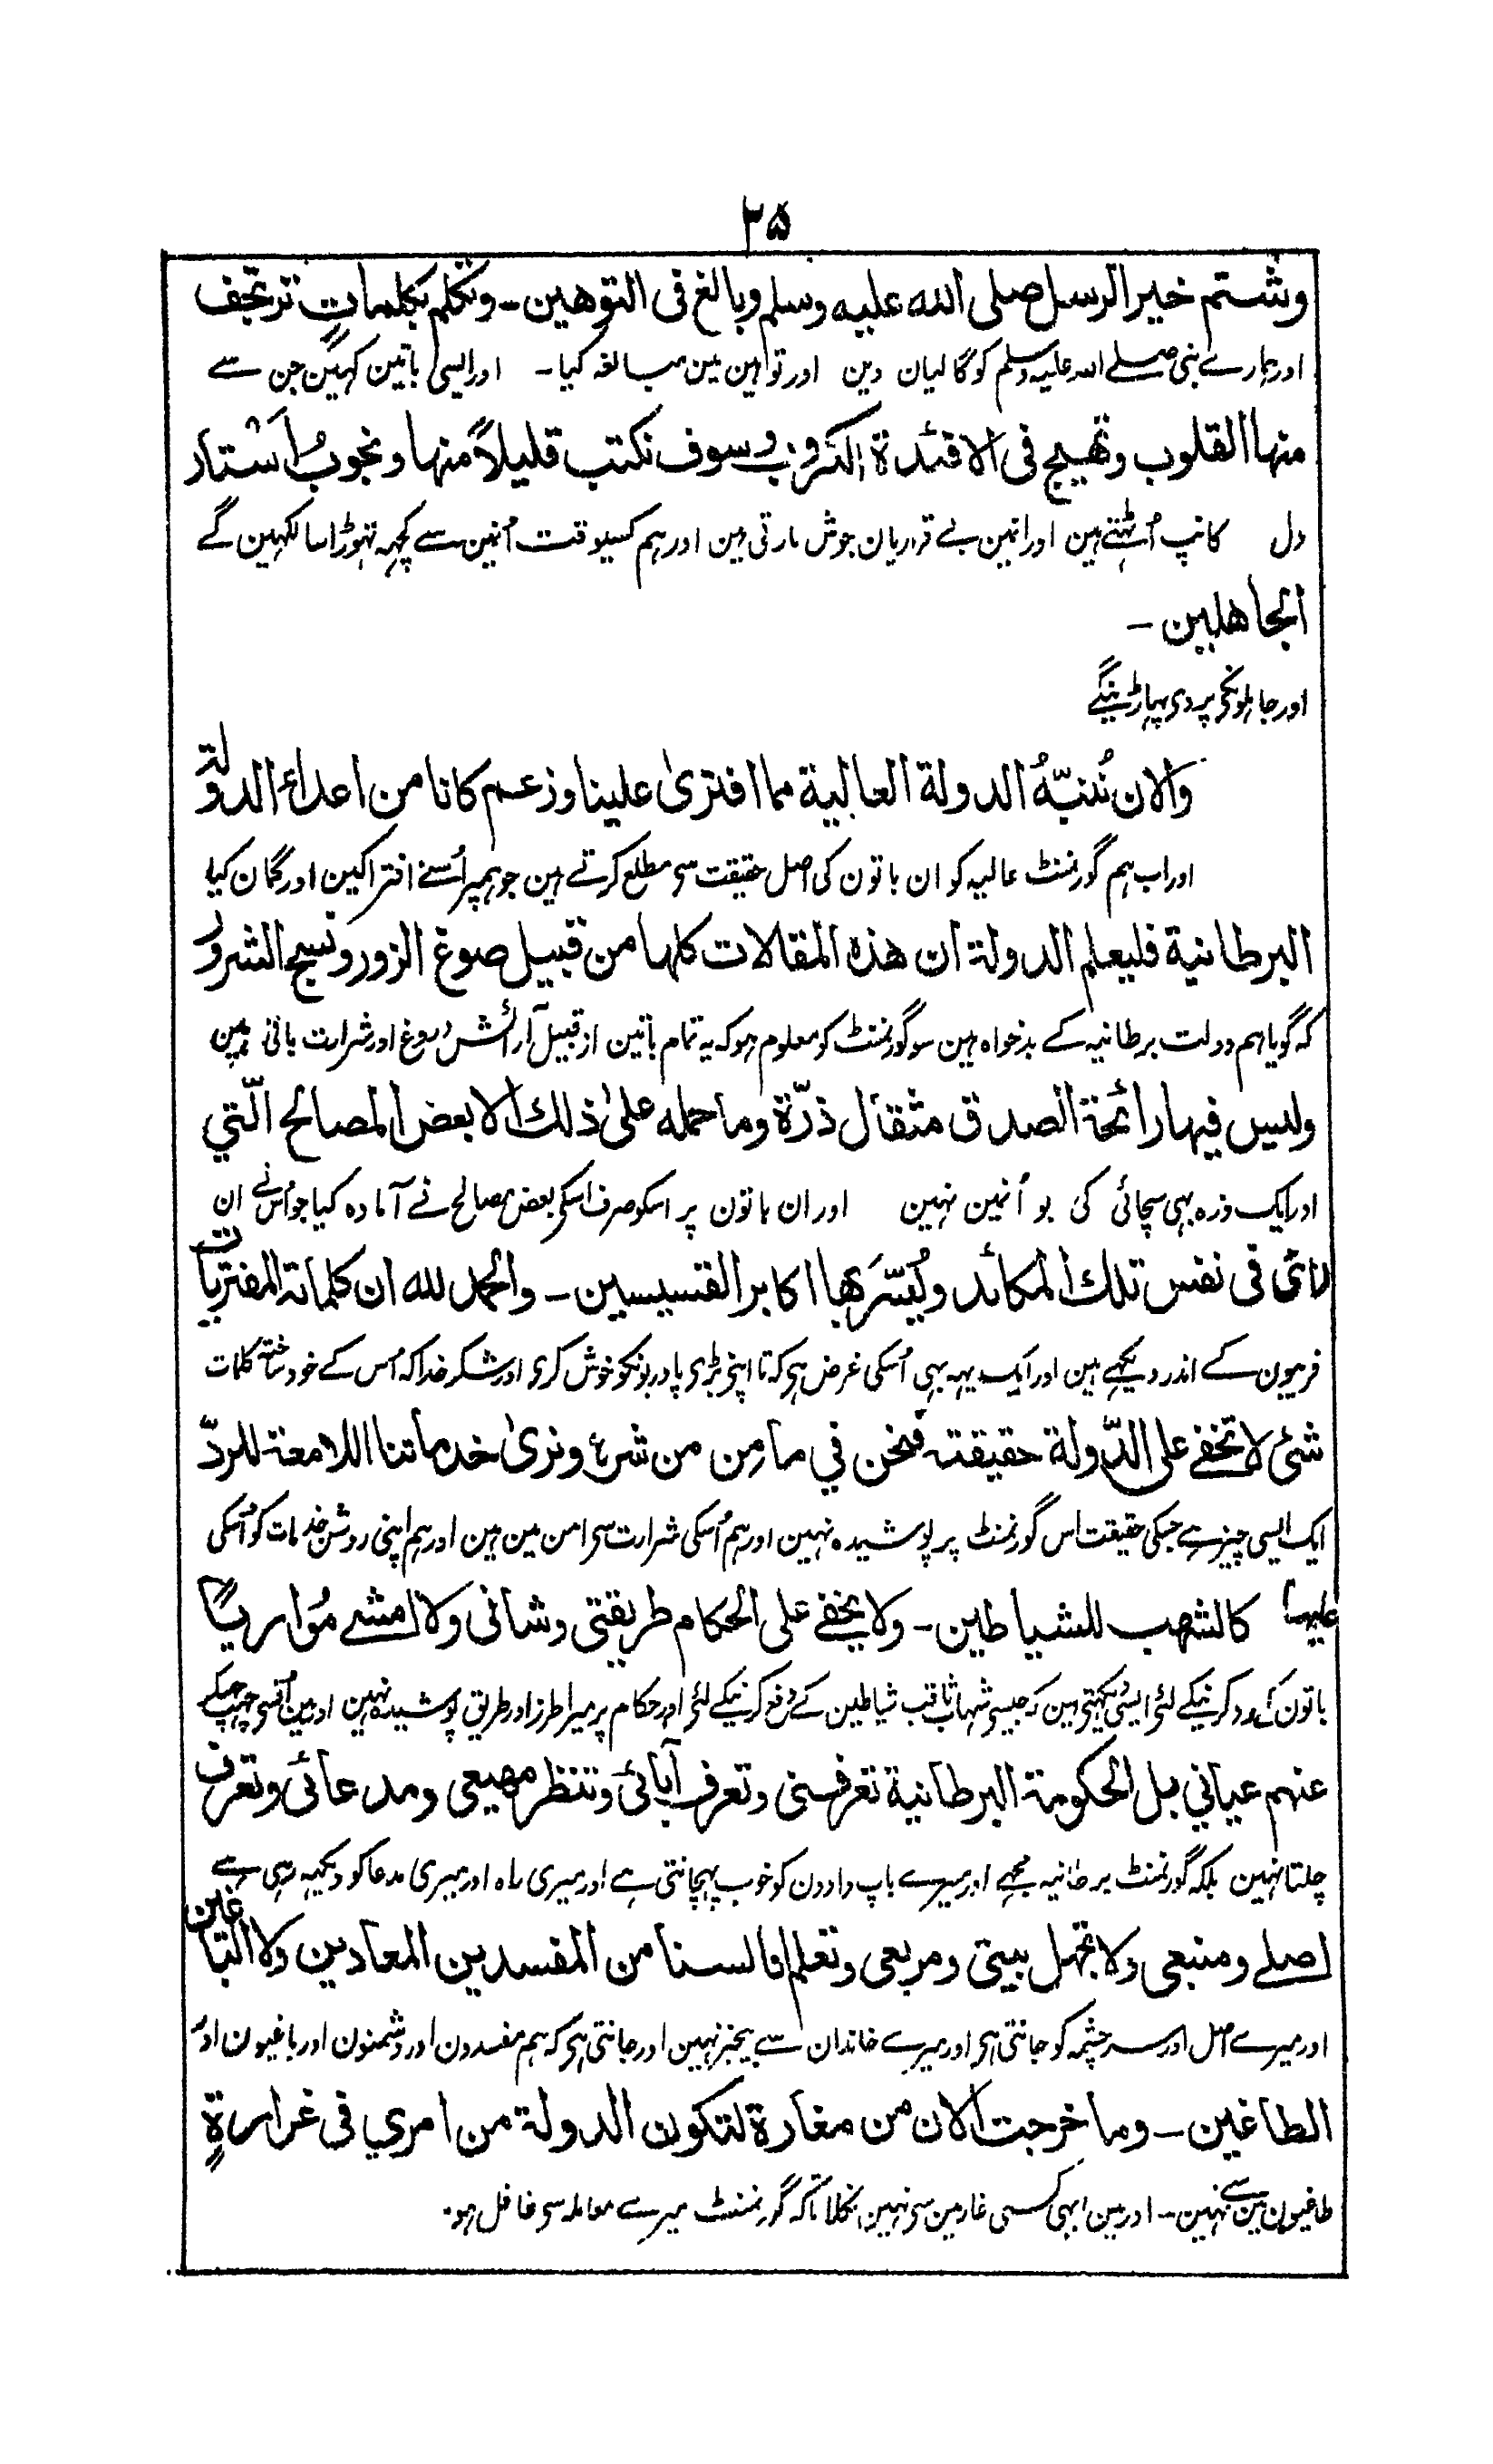 ۲۵
وشتم خير الرسل صلى الله عليه وسلم وبالغ فى التوهين ـ وتكلم بكلماتٍ ترتجف
اور ہمارے نبی صلے اللہ علیہ وسلم کو گالیان دین اور توہین مین مبالغہ کیا ۔ اور ایسی باتین کہین جن سے
منها القلوب وتهيج فى الافئدة الكروب وسوف نكتب قليلاً منها ونجوبُ اَستار
دل کانپ اُٹھتے ہین اور انمین بے قراریان جوش مارتی ہین اور ہم کسیوقت اُنمین سے کچہہ تہوڑا سا لکہین گے
الجاهلين ـ
اور جاہلونکی پردی پہاڑینگے
والان نُنبّهُ الدولة العالية مما افترىٰ علينا وزعم كانا من اعداء الدولة
اور اب ہم گورنمنٹ عالیہ کو ان باتون کی اصل حقیقت سی مطلع کرتے ہین جو ہمپر اُسنے افترا کین اور گمان کیا
البرطانية فليعلم الدولة ان هذه المقالات كلها من قبيل صوغ الزور ونسج الشرور
کہ گویا ہم دولت برطانیہ کے بدخواہ ہین سو گورنمنٹ کو معلوم ہو کہ یہ تمام باتین از قبیل آرائش دروغ اور شرارت بافی ہین
وليس فيها رائحة الصدق مثقال ذرّة وما حمله علىٰ ذلك الا بعض المصالح الّتي
اور ایک ذرہ بہی سچائی کی بو اُنمین نہین اور ان باتون پر اسکو صرف اسکی بعض مصالح نے آمادہ کیا جو اُس نے ان
رائ فى نفس تلك المكائد ويُسّرَ بها اكابر القسيسين ـ والحمد لله ان كلماته المفتريات
فریبون کے اندر دیکہے ہین اور ایک یہہ بہی اُسکی غرض ہی کہ تا اپنی بڑی پادریونکو خوش کری اور شکر خدا کہ اُس کے خود ساختہ کلمات
شئ لا تخفے على الدّولة حقيقته فنحن في مامن من شرہ ونرىٰ خدماتنا اللامعة للردّ
ایک ایسی چیز ہے جسکی حقیقت اس گورنمنٹ پر پوشیدہ نہین اور ہم اُسکی شرارت سی امن مین ہین اور ہم اپنی روشن خدمات کو اُسکی
عليها كالشهب للشياطين ـ ولا يخفے على الحكام طريقتى وشانى ولا امشے مُواريًا
باتون کے رد کرنیکے لئے ایسی دیکہتی ہین کہ جیسی شہاب ثاقب شیاطین کے دفع کرنیکے لئی اور حکام پر میرا طرز اور طریق پوشیدہ نہین اور مین اُنسی چہپ کے
عنهم عيانى بل الحكومة البرطانية تعرفنى وتعرف آبائى وتنظر مهيعى ومدعائى وتعرف
چلتا نہین بلکہ گورنمنٹ برطانیہ مجہے اور میرے باپ دادون کو خوب پہچانتی ہے اور میری راہ اور میری مدعا کو دیکہہ رہی ہے
اصلے ومنبعى ولا تجهل بيتى ومربعى وتعلم انا لسنا من المفسدين المعادين ولا الباغين
اور میرے اصل اور سرچشمہ کو جانتی ہی اور میرے خاندان سے بیخبر نہین اور جانتی ہی کہ ہم مفسدون اور دشمنون اور باغیون اور
الطاغين ـ وما خرجت الان من مغارة لتكون الدولة من امري فى غرارةٍ
طاغیون مین سے نہین ۔ اور مین ابہی کسی غار مین سی نہین نکلا تاکہ گورنمنٹ میرے معاملہ سی غافل ہو۔